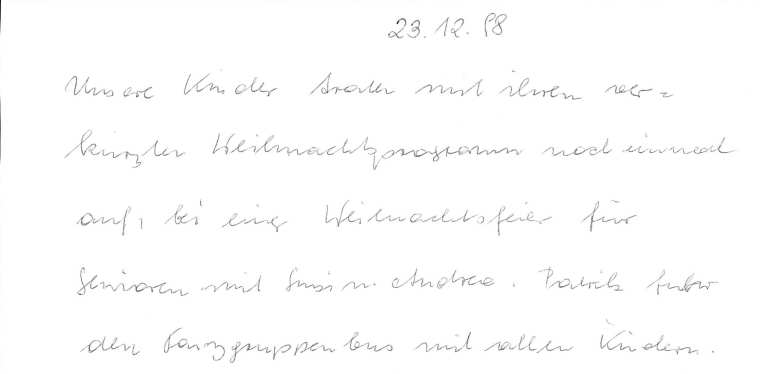 23.12.98
Unsere Kinder traten mit ihren ver=
kürzten Weihnachtsprogramm noch einmal
auf, bei einer Weihnachtsfeier für
Senioren mit Susi u. Andrea. Patrik fuhr
den Tanzgruppenbus mit allen Kindern.